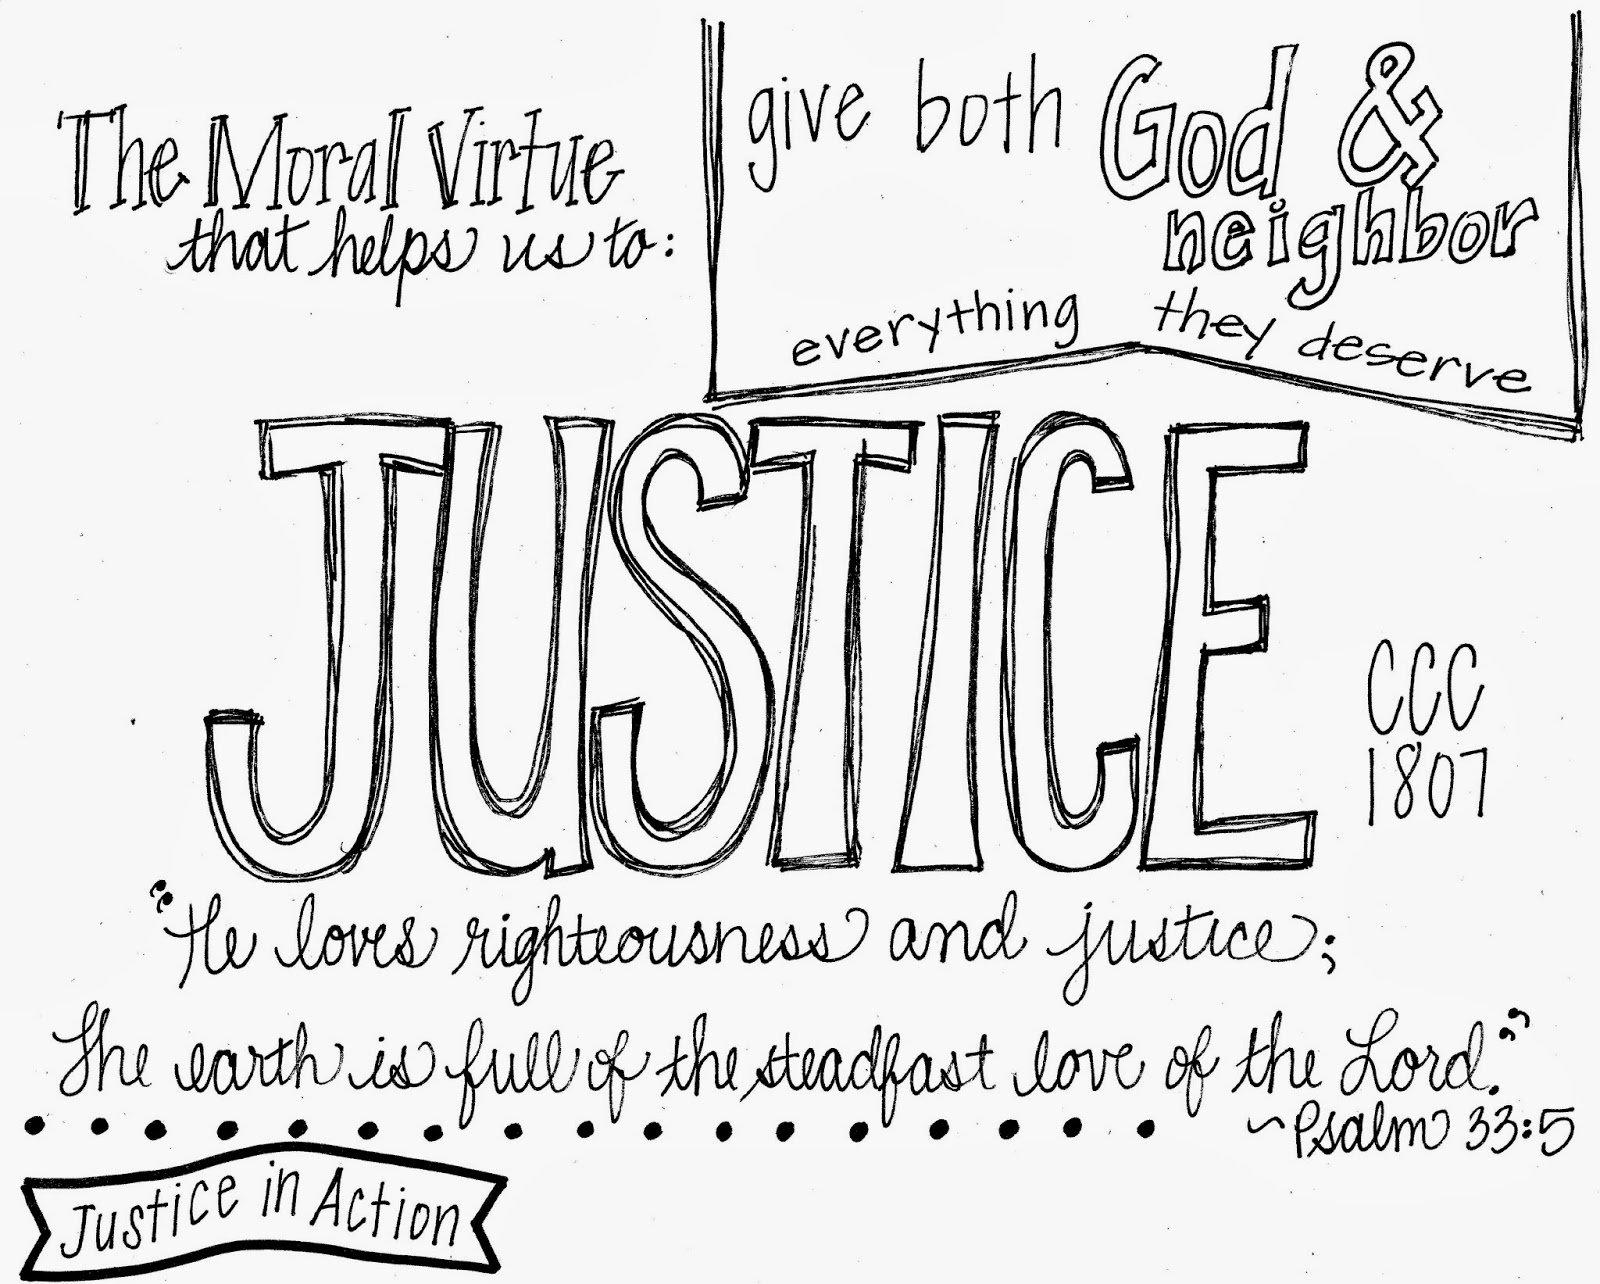 The Moral Virtue
that helps us to:
give both God &
neighbor
everything they deserve
JUSTICE
CCC
1807
"He loves righteousness and justice;
The earth is full of the steadfast love of the Lord."
~Psalm 33:5
Justice in Action